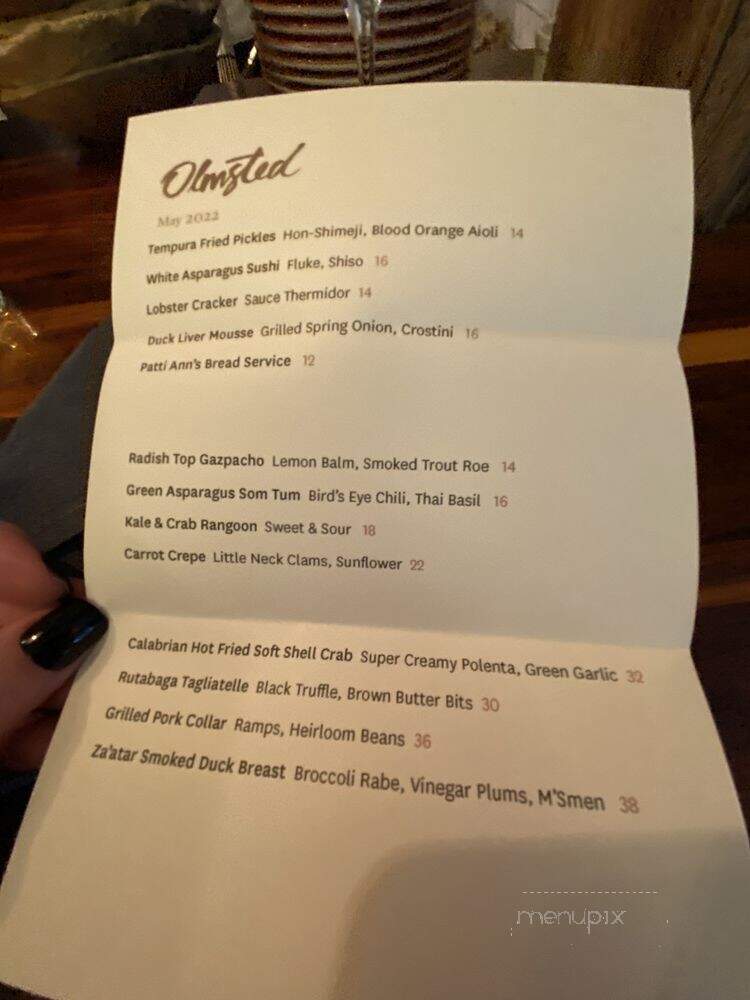 Olmsted
May 2022
Tempura Fried Pickles Hon-Shimeji, Blood Orange Aioli 14
White Asparagus Sushi Fluke, Shiso 16
Lobster Cracker Sauce Thermidor 14
Duck Liver Mousse Grilled Spring Onion, Crostini 16
Patti Ann's Bread Service 12
Radish Top Gazpacho Lemon Balm, Smoked Trout Roe 14
Green Asparagus Som Tum Bird's Eye Chili, Thai Basil 16
Kale & Crab Rangoon Sweet & Sour 18
Carrot Crepe Little Neck Clams, Sunflower 22
Calabrian Hot Fried Soft Shell Crab Super Creamy Polenta, Green Garlic 32
Rutabaga Tagliatelle Black Truffle, Brown Butter Bits 30
Grilled Pork Collar Ramps, Heirloom Beans 36
Za'atar Smoked Duck Breast Broccoli Rabe, Vinegar Plums, M'Smen 38
menupix